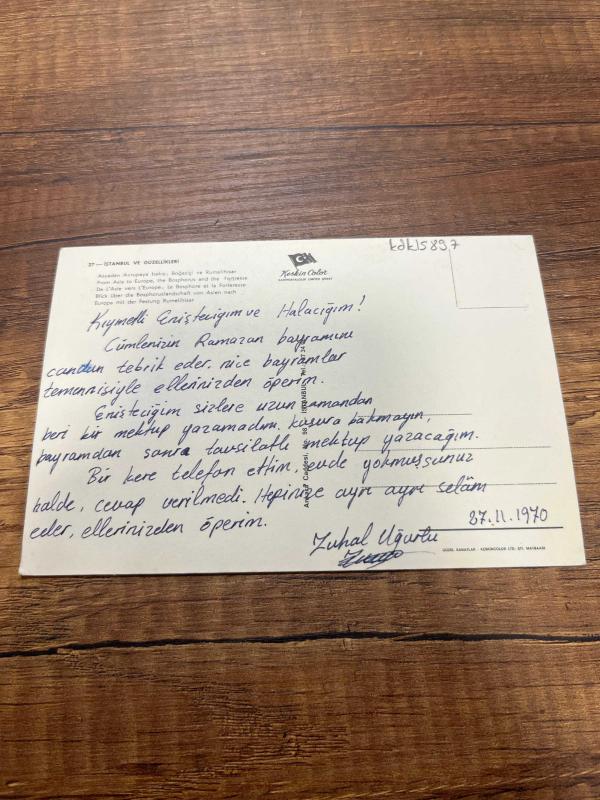 kdk15897
27 — İSTANBUL VE GÜZELLİKLERİ
Asyadan Avrupaya bakış: Boğaziçi ve Rumelihisar
From Asia to Europe, the Bosphorus and the Fortresse
De L'Asie vers L'Europe: Le Bosphore et la Forteresse
Blick über die Bosphoruslandschaft von Asien nach
Europa mit der Festung Rumelihisar
Keskin Color
KARTPOSTALCILIK LIMITED ŞİRKETİ
Kıymetli Enişteciğim ve Halacığım!
Cümlenizin Ramazan bayramını
candan tebrik eder, nice bayramlar
temennisiyle ellerinizden öperim.
Enişteciğim sizlere uzun zamandan
beri bir mektup yazamadım, kusura bakmayın,
bayramdan sonra tavsilatlı mektup yazacağım.
Bir kere telefon ettim, evde yokmuşsunuz
halde, cevap verilmedi. Hepinize ayrı ayrı selâm
eder, ellerinizden öperim.
27.11.1970
Zuhal Uğurlu
Ankara Caddesi, No. 98 - İSTANBUL
GÜZEL SANATLAR - KESKİNCOLOR LTD. ŞTİ. MATBAASI